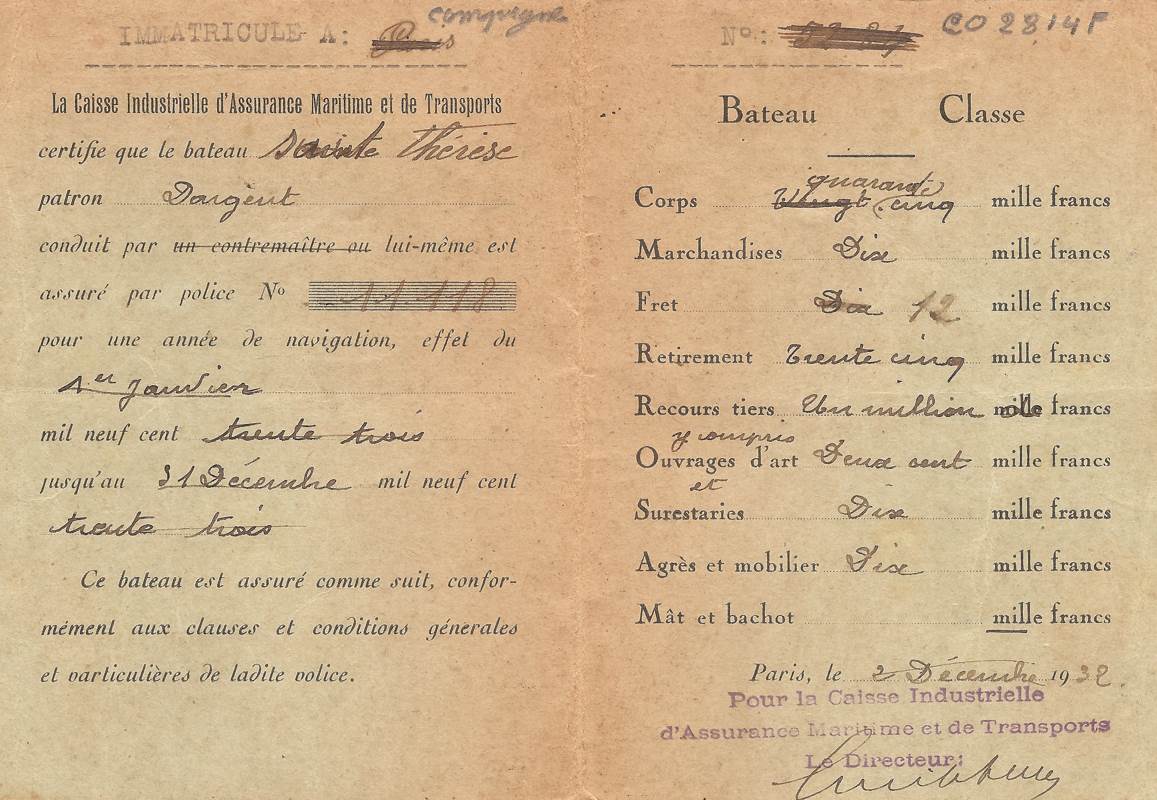 compiegne
IMMATRICULE A: Paris
La Caisse Industrielle d'Assurance Maritime et de Transports
certifie que le bateau Sainte Thérèse
patron Dargent
conduit par un contremaître ou lui-même est
assuré par police Nº 11 118
pour une année de navigation, effet du
1er Janvier
mil neuf cent trente trois
jusqu'au 31 Décembre mil neuf cent
trente trois
Ce bateau est assuré comme suit, confor-
mément aux clauses et conditions génerales
et particulières de ladite police.
Nº: CO 2814 F
Bateau Classe
quarante
Corps Vingt cinq mille francs
Marchandises Dix mille francs
Fret Dix 12 mille francs
Retirement Trente cinq mille francs
Recours tiers Un million mille francs
y compris
Ouvrages d'art Deux cent mille francs
et
Surestaries Dix mille francs
Agrès et mobilier Dix mille francs
Mât et bachot mille francs
Paris, le 2 Décembre 1932.
Pour la Caisse Industrielle
d'Assurance Maritime et de Transports
Le Directeur: